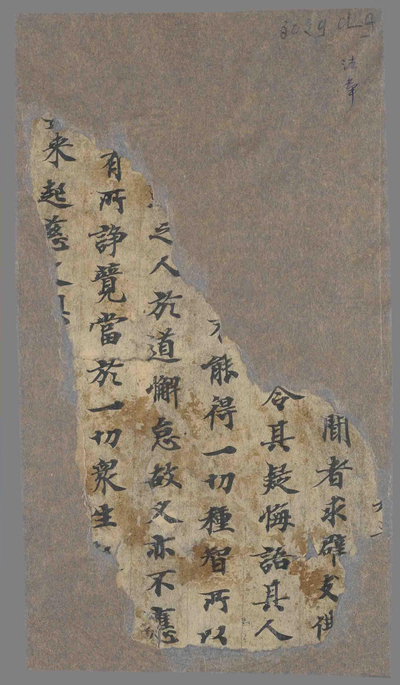 法華
聞者求辟支佛
令其疑悔語其人
不能得一切種智所以
之人於道懈怠故又亦不應
有所諍競當於一切衆生
來起慈